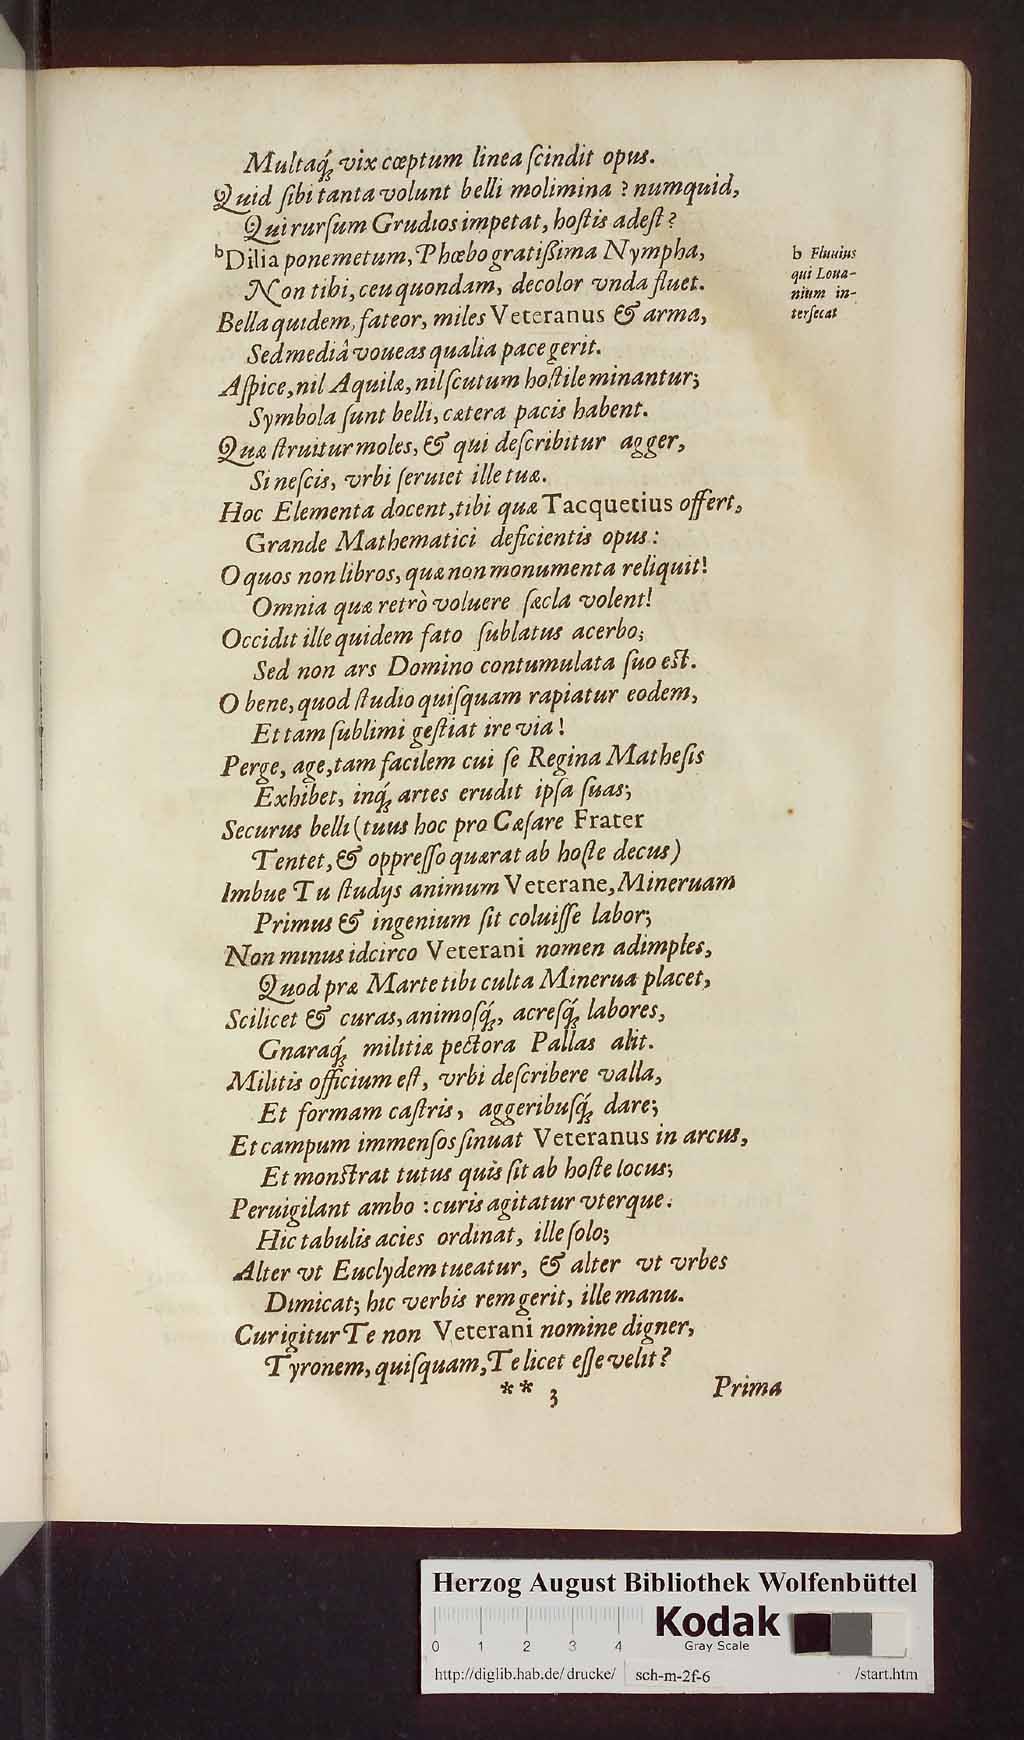 Multaq́; vix cœptum linea ſcindit opus.
Quid ſibi tanta volunt belli molimina ? numquid,
Qui rurſum Grudios impetat, hoſtis adeſt ?
b Dilia pone metum, Phœbo gratißima Nympha,
Non tibi, ceu quondam, decolor vnda fluet.
Bella quidem, fateor, miles Veteranus & arma,
Sed mediâ voueas qualia pace gerit.
Aſpice, nil Aquilæ, nil ſcutum hoſtile minantur;
Symbola ſunt belli, cætera pacis habent.
Quæ ſtruitur moles, & qui deſcribitur agger,
Si neſcis, vrbi ſeruiet ille tuæ.
Hoc Elementa docent, tibi quæ Tacquetius offert,
Grande Mathematici deficientis opus :
O quos non libros, quæ non monumenta reliquit!
Omnia quæ retrò voluere ſæcla volent!
Occidit ille quidem fato ſublatus acerbo;
Sed non ars Domino contumulata ſuo eſt.
O bene, quod ſtudio quiſquam rapiatur eodem,
Et tam ſublimi geſtiat ire via !
Perge, age, tam facilem cui ſe Regina Matheſis
Exhibet, inq́; artes erudit ipſa ſuas;
Securus belli (tuus hoc pro Cæſare Frater
Tentet, & oppreſſo quærat ab hoſte decus)
Imbue Tu ſtudijs animum Veterane, Mineruam
Primus & ingenium ſit coluiſſe labor;
Non minus idcirco Veterani nomen adimples,
Quod præ Marte tibi culta Minerua placet,
Scilicet & curas, animoſq́;, acreſq́; labores,
Gnaraq́; militiæ pectora Pallas alit.
Militis officium eſt, vrbi deſcribere valla,
Et formam caſtris, aggeribuſq́; dare;
Et campum immenſos ſinuat Veteranus in arcus,
Et monſtrat tutus quis ſit ab hoſte locus;
Peruigilant ambo : curis agitatur vterque.
Hic tabulis acies ordinat, ille ſolo;
Alter vt Euclydem tueatur, & alter vt vrbes
Dimicat; hic verbis rem gerit, ille manu.
Cur igitur Te non Veterani nomine digner,
Tyronem, quiſquam, Te licet eſſe velit ?
** 3
Prima
b Fluuius
qui Loua-
nium in-
terſecat
Herzog August Bibliothek Wolfenbüttel
Kodak
Gray Scale
0 1 2 3 4
http://diglib.hab.de/drucke/ sch-m-2f-6 /start.htm